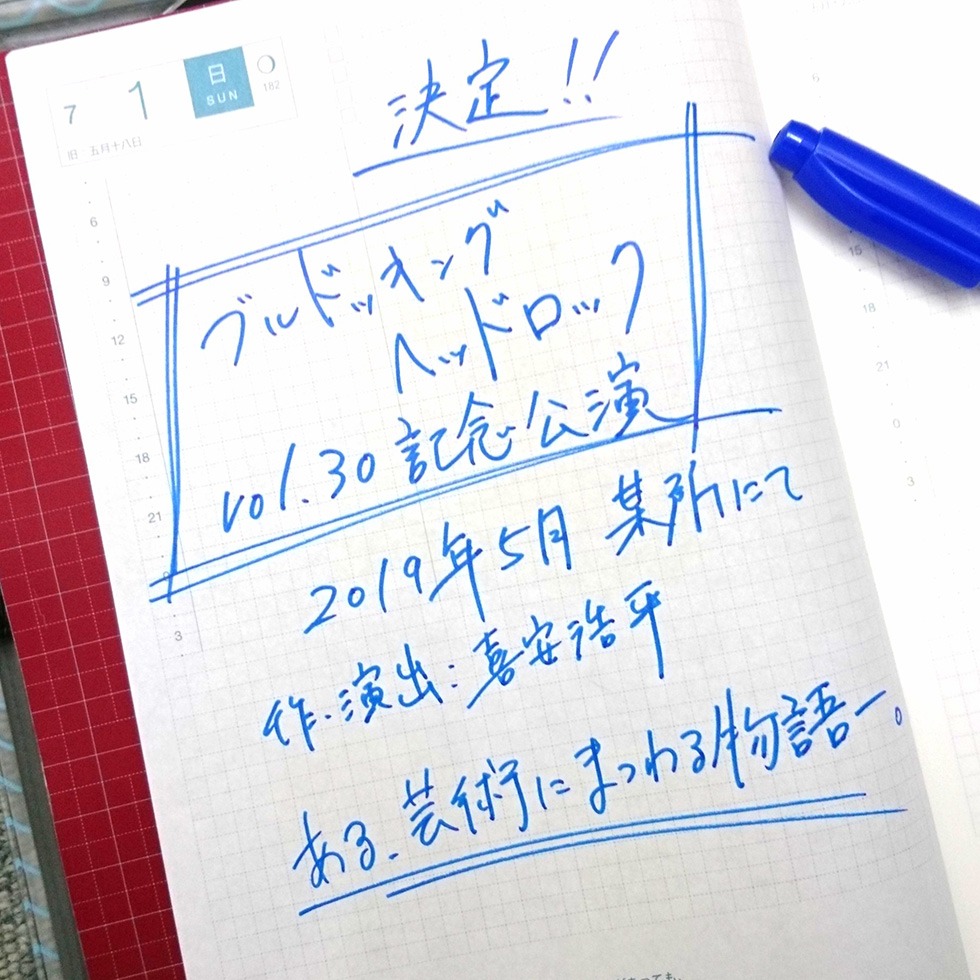 7 1 日 SUN
182
旧 五月十八日
決定!!
6
9
12
15
18
21
3
ブルドッキング
ヘッドロック
vol.30 記念公演
2019年5月 某所にて
作・演出:喜安浩平
ある、芸術にまつわる物語ー。
6
15
18
21
0
3